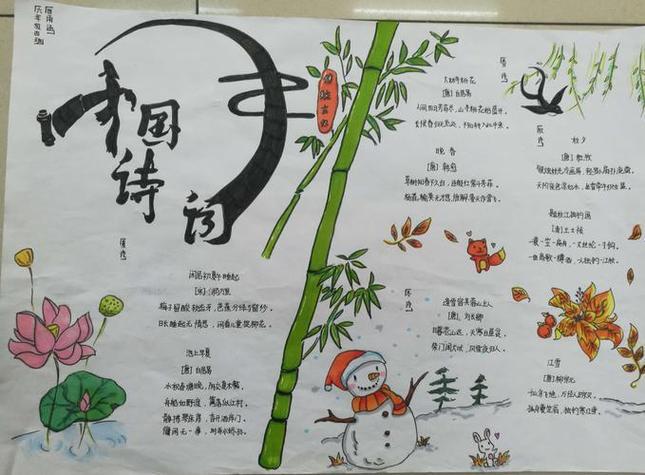 中国诗词
夏诗
闲居初夏午睡起
[宋] 杨万里
梅子留酸软齿牙,芭蕉分绿与窗纱。
日长睡起无情思,闲看儿童捉柳花。
池上早夏
[唐] 白居易
水积春塘晚,阴交夏木繁。
舟船如野渡,篱落似江村。
静拂琴床席,香开酒库门。
慵闲无一事,时弄小娇孙。
春诗
大林寺桃花
[唐] 白居易
人间四月芳菲尽,山寺桃花始盛开。
长恨春归无觅处,不知转入此中来。
晚春
[唐] 韩愈
草树知春不久归,百般红紫斗芳菲。
杨花榆荚无才思,惟解漫天作雪飞。
秋诗
秋夕
[唐] 杜牧
银烛秋光冷画屏,轻罗小扇扑流萤。
天阶夜色凉如水,坐看牵牛织女星。
题秋江独钓图
[清] 王士祯
一蓑一笠一扁舟,一丈丝纶一寸钩。
一曲高歌一樽酒,一人独钓一江秋。
冬诗
逢雪宿芙蓉山主人
[唐] 刘长卿
日暮苍山远,天寒白屋贫。
柴门闻犬吠,风雪夜归人。
江雪
[唐] 柳宗元
千山鸟飞绝,万径人踪灭。
孤舟蓑笠翁,独钓寒江雪。